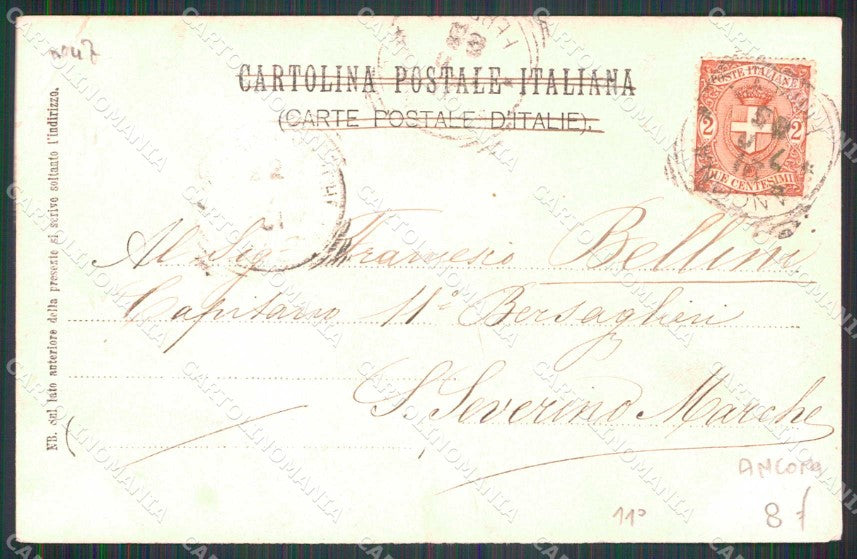 CARTOLINA POSTALE ITALIANA
(CARTE POSTALE D'ITALIE).
POSTE ITALIANE
2 2
DUE CENTESIMI
ANCONA
Al Sig. Francesco Bellini
Capitano 11º Bersaglieri
S. Severino Marche
NB. Sul lato anteriore della presente si scrive soltanto l'indirizzo.
ANCONA
11º
8
CARTOLINOMANIA